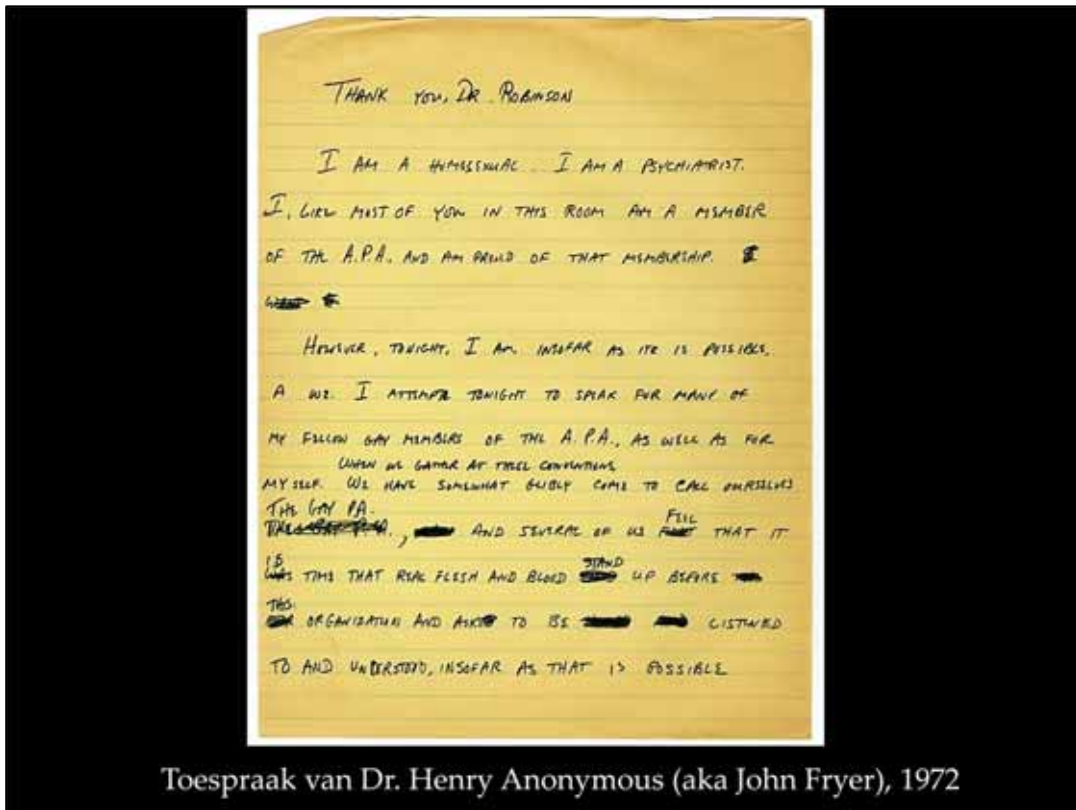 THANK YOU, DR. ROBINSON
I AM A HOMOSEXUAL. I AM A PSYCHIATRIST.
I, LIKE MOST OF YOU IN THIS ROOM AM A MEMBER
OF THE A.P.A. AND AM PROUD OF THAT MEMBERSHIP.
HOWEVER, TONIGHT, I AM, INSOFAR AS IT IS POSSIBLE,
A WE. I ATTEMPT TONIGHT TO SPEAK FOR MANY OF
MY FELLOW GAY MEMBERS OF THE A.P.A., AS WELL AS FOR
WHEN WE GATHER AT THESE CONVENTIONS
MYSELF. WE HAVE SOMEWHAT GLIBLY COME TO CALL OURSELVES
THE GAY PA.
FEEL
, AND SEVERAL OF US THAT IT
IS STAND
TIME THAT REAL FLESH AND BLOOD UP BEFORE
THIS
ORGANIZATION AND ASK TO BE LISTENED
TO AND UNDERSTOOD, INSOFAR AS THAT IS POSSIBLE
Toespraak van Dr. Henry Anonymous (aka John Fryer), 1972